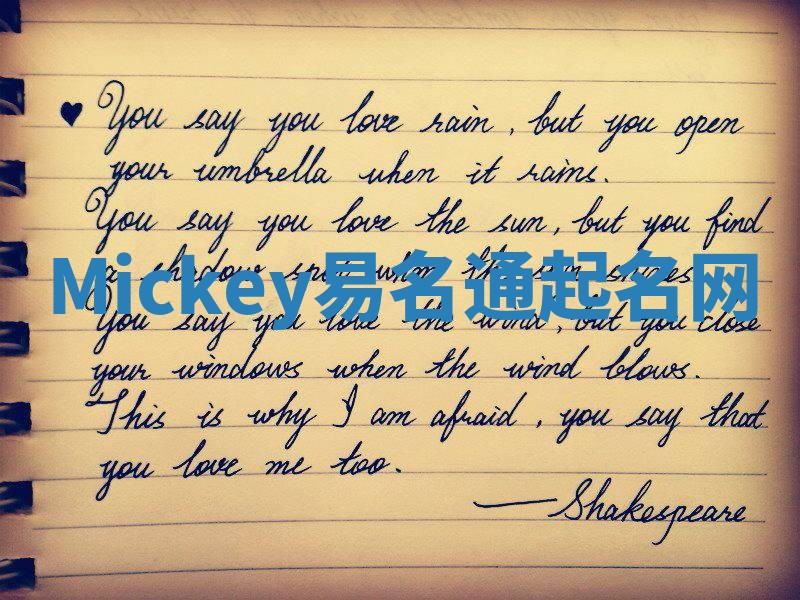 ♥ You say you love rain, but you open
your umbrella when it rains.
You say you love the sun, but you find
a shadow spot when the sun shines.
Mickey易名通起名网
You say you love the wind, but you close
your windows when the wind blows.
This is why I am afraid, you say that
you love me too.
—Shakespeare